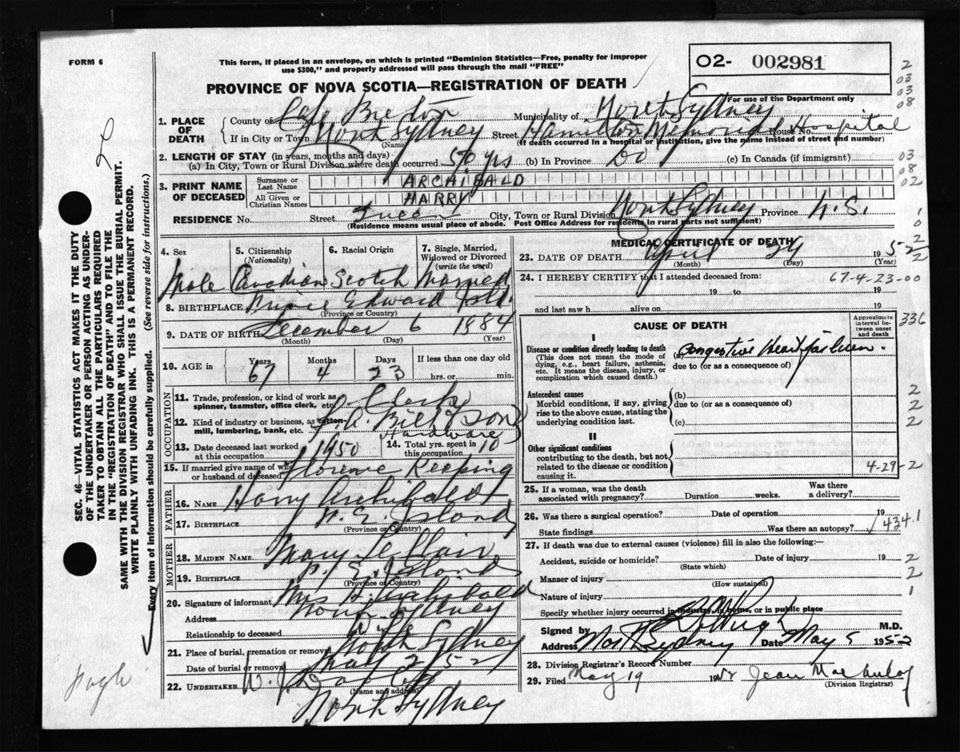 FORM 6
This form, if placed in an envelope, on which is printed "Dominion Statistics—Free, penalty for improper
use $300," and properly addressed will pass through the mail "FREE"
O2- 002981
PROVINCE OF NOVA SCOTIA—REGISTRATION OF DEATH
For use of the Department only
2
03
03
08
1. PLACE OF DEATH
County of Cape Breton Municipality of North Sydney
If in City or Town North Sydney Street Hamilton Memorial Hospital House No.
(Name) (If death occurred in a hospital or institution, give the name instead of street and number)
2. LENGTH OF STAY (in years, months and days)
(a) In City, Town or Rural Division where death occurred 50 yrs (b) In Province Do (c) In Canada (if immigrant)
03
08
02
3. PRINT NAME OF DECEASED
Surname or Last Name ARCHIBALD
All Given or Christian Names HARRY
RESIDENCE No. Street City, Town or Rural Division North Sydney Province N.S.
(Residence means usual place of abode. Post Office Address for residents in rural parts not sufficient)
1
0
4. Sex
5. Citizenship (Nationality)
6. Racial Origin
7. Single, Married, Widowed or Divorced (write the word)
Male Canadian Scotch Married
8. BIRTHPLACE Prince Edward Isld.
(Province or Country)
9. DATE OF BIRTH December 6 1884
(Month) (Day) (Year)
10. AGE in Years Months Days If less than one day old
67 4 23 hrs. or min.
OCCUPATION
11. Trade, profession, or kind of work as
spinner, teamster, office clerk, etc. Clerk
12. Kind of industry or business, as cotton-
mill, lumbering, bank, etc. Hardware
13. Date deceased last worked
at this occupation 1950
14. Total yrs. spent in
this occupation 10
15. If married give name of wife
or husband of deceased Florence Keeping
FATHER
16. NAME Harry Archibald
17. BIRTHPLACE P. E. Island
(Province or Country)
MOTHER
18. MAIDEN NAME Mary LeBlair
19. BIRTHPLACE P. E. Island
(Province or Country)
20. Signature of informant Mrs H. Archibald
Address North Sydney
Relationship to deceased Wife
21. Place of burial, cremation or removal North Sydney
Date of burial or removal May 2/52
22. UNDERTAKER W. J.
(Name and address)
North Sydney
MEDICAL CERTIFICATE OF DEATH
23. DATE OF DEATH April 29 1952
(Month) (Day)
2
2
24. I HEREBY CERTIFY that I attended deceased from 67-4-23-00
19 to 19
and last saw h alive on 19
CAUSE OF DEATH
Approximate interval between onset and death
336
I
Disease or condition directly leading to death
(This does not mean the mode of
dying, e.g., heart failure, asthenia,
etc. It means the disease, injury, or
complication which caused death.)
Congestive Heart failure.
due to (or as a consequence of)
Antecedent causes
Morbid conditions, if any, giving
rise to the above cause, stating the
underlying condition last
(b)
due to (or as a consequence of)
(c)
2
2
2
II
Other significant conditions
contributing to the death, but not
related to the disease or condition
causing it.
4-29-2
25. If a woman, was the death
associated with pregnancy? Duration weeks. Was there
a delivery?
26. Was there a surgical operation? Date of operation 19
State findings Was there an autopsy? 434.1
27. If death was due to external causes (violence) fill in also the following:
Accident, suicide or homicide? Date of injury 19
(State which)
Manner of injury
(How sustained)
Nature of injury
Specify whether injury occurred in industry, in home, or in public place
2
2
1
Signed by M.D.
Address North Sydney Date May 5 1952
28. Division Registrar's Record Number
29. Filed May 19 1952 Jean
(Division Registrar)
SEC. 46—VITAL STATISTICS ACT MAKES IT THE DUTY
OF THE UNDERTAKER OR PERSON ACTING AS UNDER-
TAKER TO OBTAIN ALL THE PARTICULARS REQUIRED
IN THE "REGISTRATION OF DEATH" AND TO FILE THE
SAME WITH THE DIVISION REGISTRAR WHO SHALL ISSUE THE BURIAL PERMIT.
WRITE PLAINLY WITH UNFADING INK. THIS IS A PERMANENT RECORD.
Every item of Information should be carefully supplied. (See reverse side for instructions.)